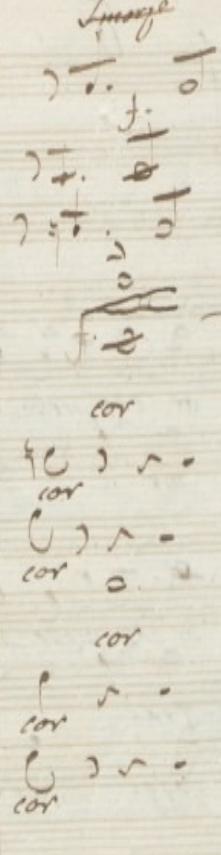 Smorze
f.
f.
cor
cor
cor
cor
cor
cor